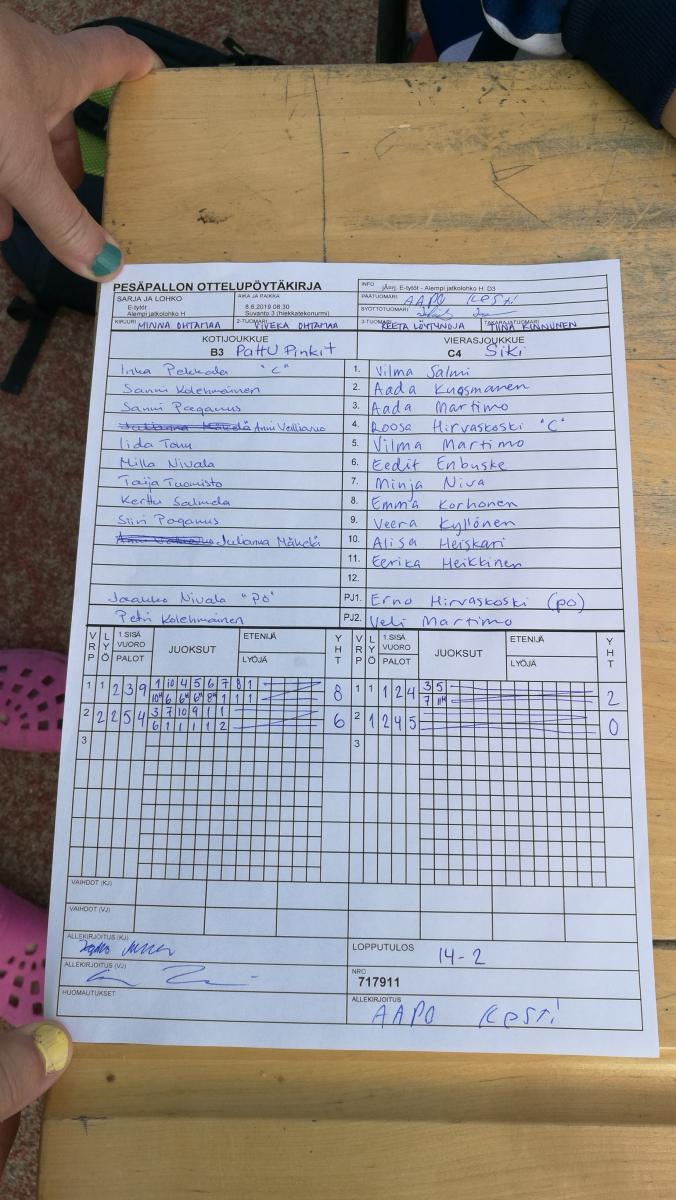 PESÄPALLON OTTELUPÖYTÄKIRJA
INFO E-tytöt - Alempi jatkolohko H: D3
SARJA JA LOHKO
E-tytöt
Alempi jatkolohko H
AIKA JA PAIKKA
8.6.2019 08:30
Suvanto 3 (hiekkatekonurmi)
PÄÄTUOMARI AAPO Kesti
SYÖTTÖTUOMARI
KIRJURI MINNA OHTAMAA
2-TUOMARI VIVEKA OHTAMAA
3-TUOMARI REETA LÖYTYNOJA
TAKARAJATUOMARI TIINA KINNUNEN
KOTIJOUKKUE
B3 PattU Pinkit
VIERASJOUKKUE
C4 Siki
Inka Pekkala "C" 1. Vilma Salmi
Sanni Kolehmainen 2. Aada Kuosmanen
Sanni Paganus 3. Aada Martimo
Julianna Mäkelä Anni Valliavuo 4. Roosa Hirvaskoski "C"
Iida Tony 5. Vilma Martimo
Milla Nivala 6. Eedit Enbuske
Taija Tuomisto 7. Minja Niva
Kerttu Salmela 8. Emma Korhonen
Siiri Paganus 9. Veera Kyllönen
Julianna Mäkelä 10. Alisa Heiskari
11. Eerika Heikkinen
12.
Jaakko Nivala "PO" PJ1. Erno Hirvaskoski (po)
Petri Kolehmainen PJ2. Veli Martimo
VRP LYÖ 1.SISÄ VUORO PALOT JUOKSUT ETENIJÄ LYÖJÄ YHT VRP LYÖ 1.SISÄ VUORO PALOT JUOKSUT ETENIJÄ LYÖJÄ YHT
1 1 2 3 9 1 10 4 5 6 7 8 1 8 1 1 1 2 4 3 5 2
10H 6 6H 6H 8H 1 1 1 7 11H
2 2 2 5 4 3 7 10 9 1 1 6 2 1 2 4 5 0
6 1 1 1 1 2
3 3
VAIHDOT (KJ)
VAIHDOT (VJ)
ALLEKIRJOITUS (KJ)
ALLEKIRJOITUS (VJ)
HUOMAUTUKSET
LOPPUTULOS 14-2
NRO
717911
ALLEKIRJOITUS
AAPO Kesti